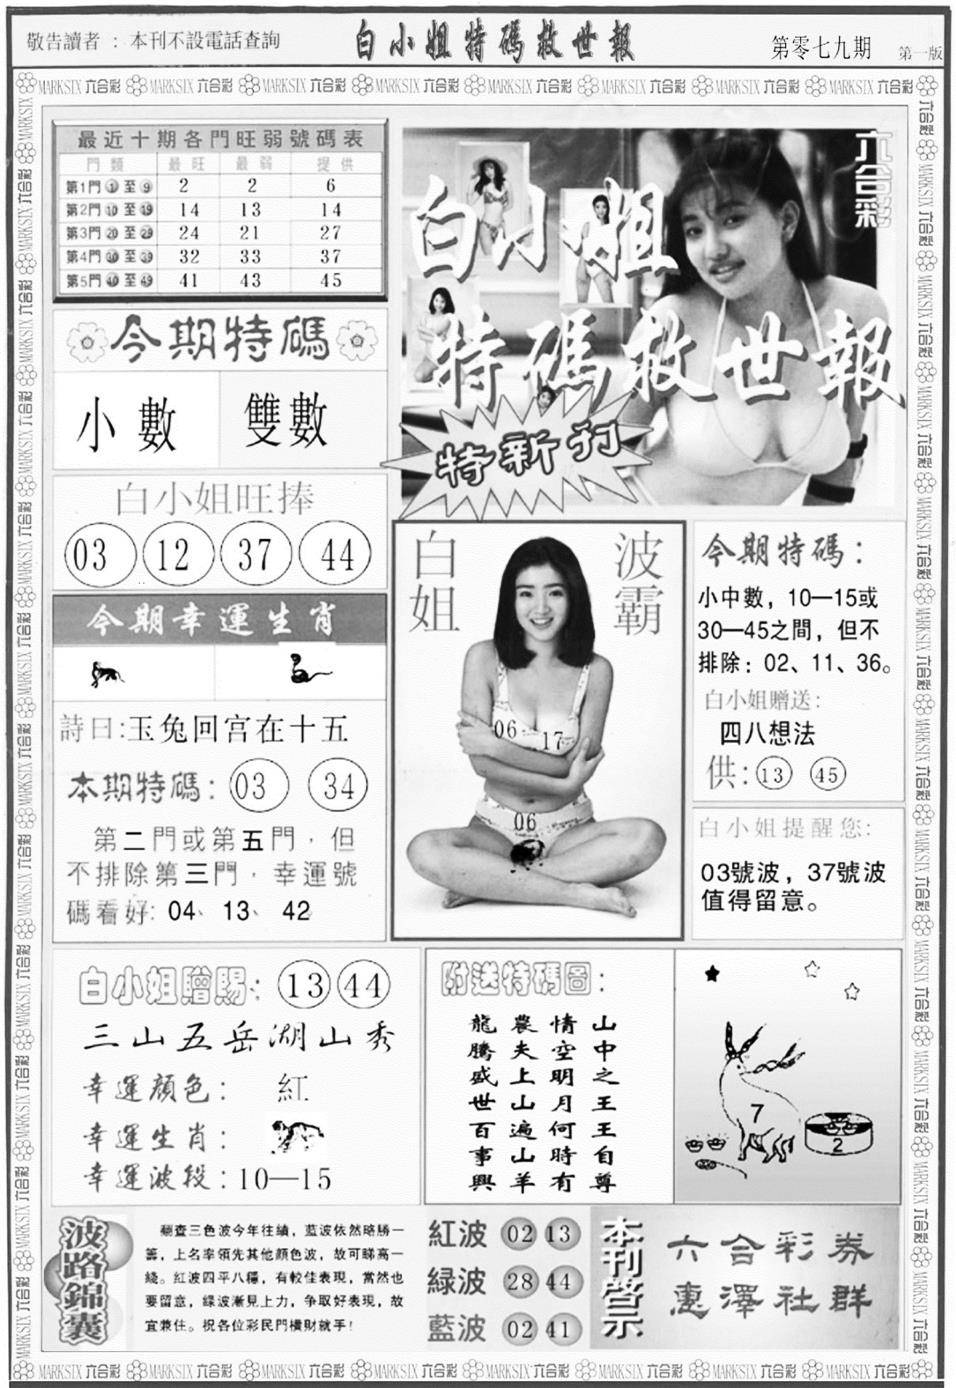 敬告讀者：本刊不設電話查詢
白小姐特碼救世報
第零七九期
第一版
MARKSIX 六合彩
最近十期各門旺弱號碼表
門類 最旺 最弱 提供
第1門①至⑨ 2 2 6
第2門⑩至⑲ 14 13 14
第3門⑳至㉙ 24 21 27
第4門㉚至㊴ 32 33 37
第5門㊵至㊾ 41 43 45
六合彩
白小姐
特碼救世報
特新刊
今期特碼
小數 雙數
白小姐旺捧
03 12 37 44
今期幸運生肖
詩曰:玉兔回宮在十五
本期特碼: 03 34
第二門或第五門，但
不排除第三門，幸運號
碼看好: 04、13、42
白姐
波霸
06 17
06
今期特碼：
小中數，10—15或
30—45之間，但不
排除：02、11、36。
白小姐贈送:
四八想法
供: 13 45
白小姐提醒您:
03號波，37號波
值得留意。
白小姐贈賜: 13 44
三山五岳湖山秀
幸運顏色: 紅
幸運生肖:
幸運波段:10—15
附送特碼圖:
山中之王王自尊
情空明月何時有
農夫上山遍山羊
龍騰盛世百事興
7
2
波路錦囊
翻查三色波今年往績，藍波依然略勝一
籌，上名率領先其他顏色波，故可睇高一
綫。紅波四平八穩，有較佳表現，當然也
要留意，綠波漸見上力，爭取好表現，故
宜兼住。祝各位彩民門橫財就手！
紅波 02 13
緑波 28 44
藍波 02 41
本刊啓示
六合彩券
惠澤社群